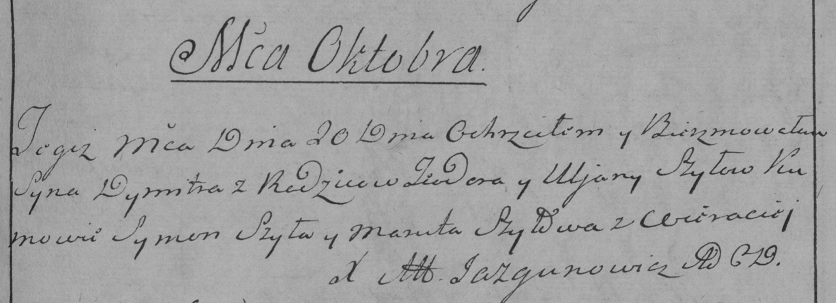 Mča Oktobra.
Tegoż Mča Dnia 20 Dnia Ochrzciłem y Bierzmowałem
Syna Dymitra z Rodzicow Teodora y Uljany Szyłow Ku
mowie Symon Szyła y Maruta Szyłowa z
X Jazgunowicz